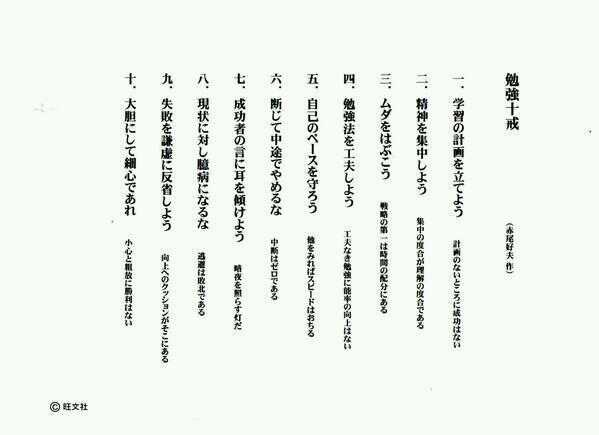 勉強十戒
(赤尾好夫 作)
一、学習の計画を立てよう 計画のないところに成功はない
二、精神を集中しよう 集中の度合が理解の度合である
三、ムダをはぶこう 戦略の第一は時間の配分にある
四、勉強法を工夫しよう 工夫なき勉強に能率の向上はない
五、自己のペースを守ろう 他をみればスピードはおちる
六、断じて中途でやめるな 中断はゼロである
七、成功者の言に耳を傾けよう 暗夜を照らす灯だ
八、現状に対し臆病になるな 逃避は敗北である
九、失敗を謙虚に反省しよう 向上へのクッションがそこにある
十、大胆にして細心であれ 小心と粗放に勝利はない
©旺文社